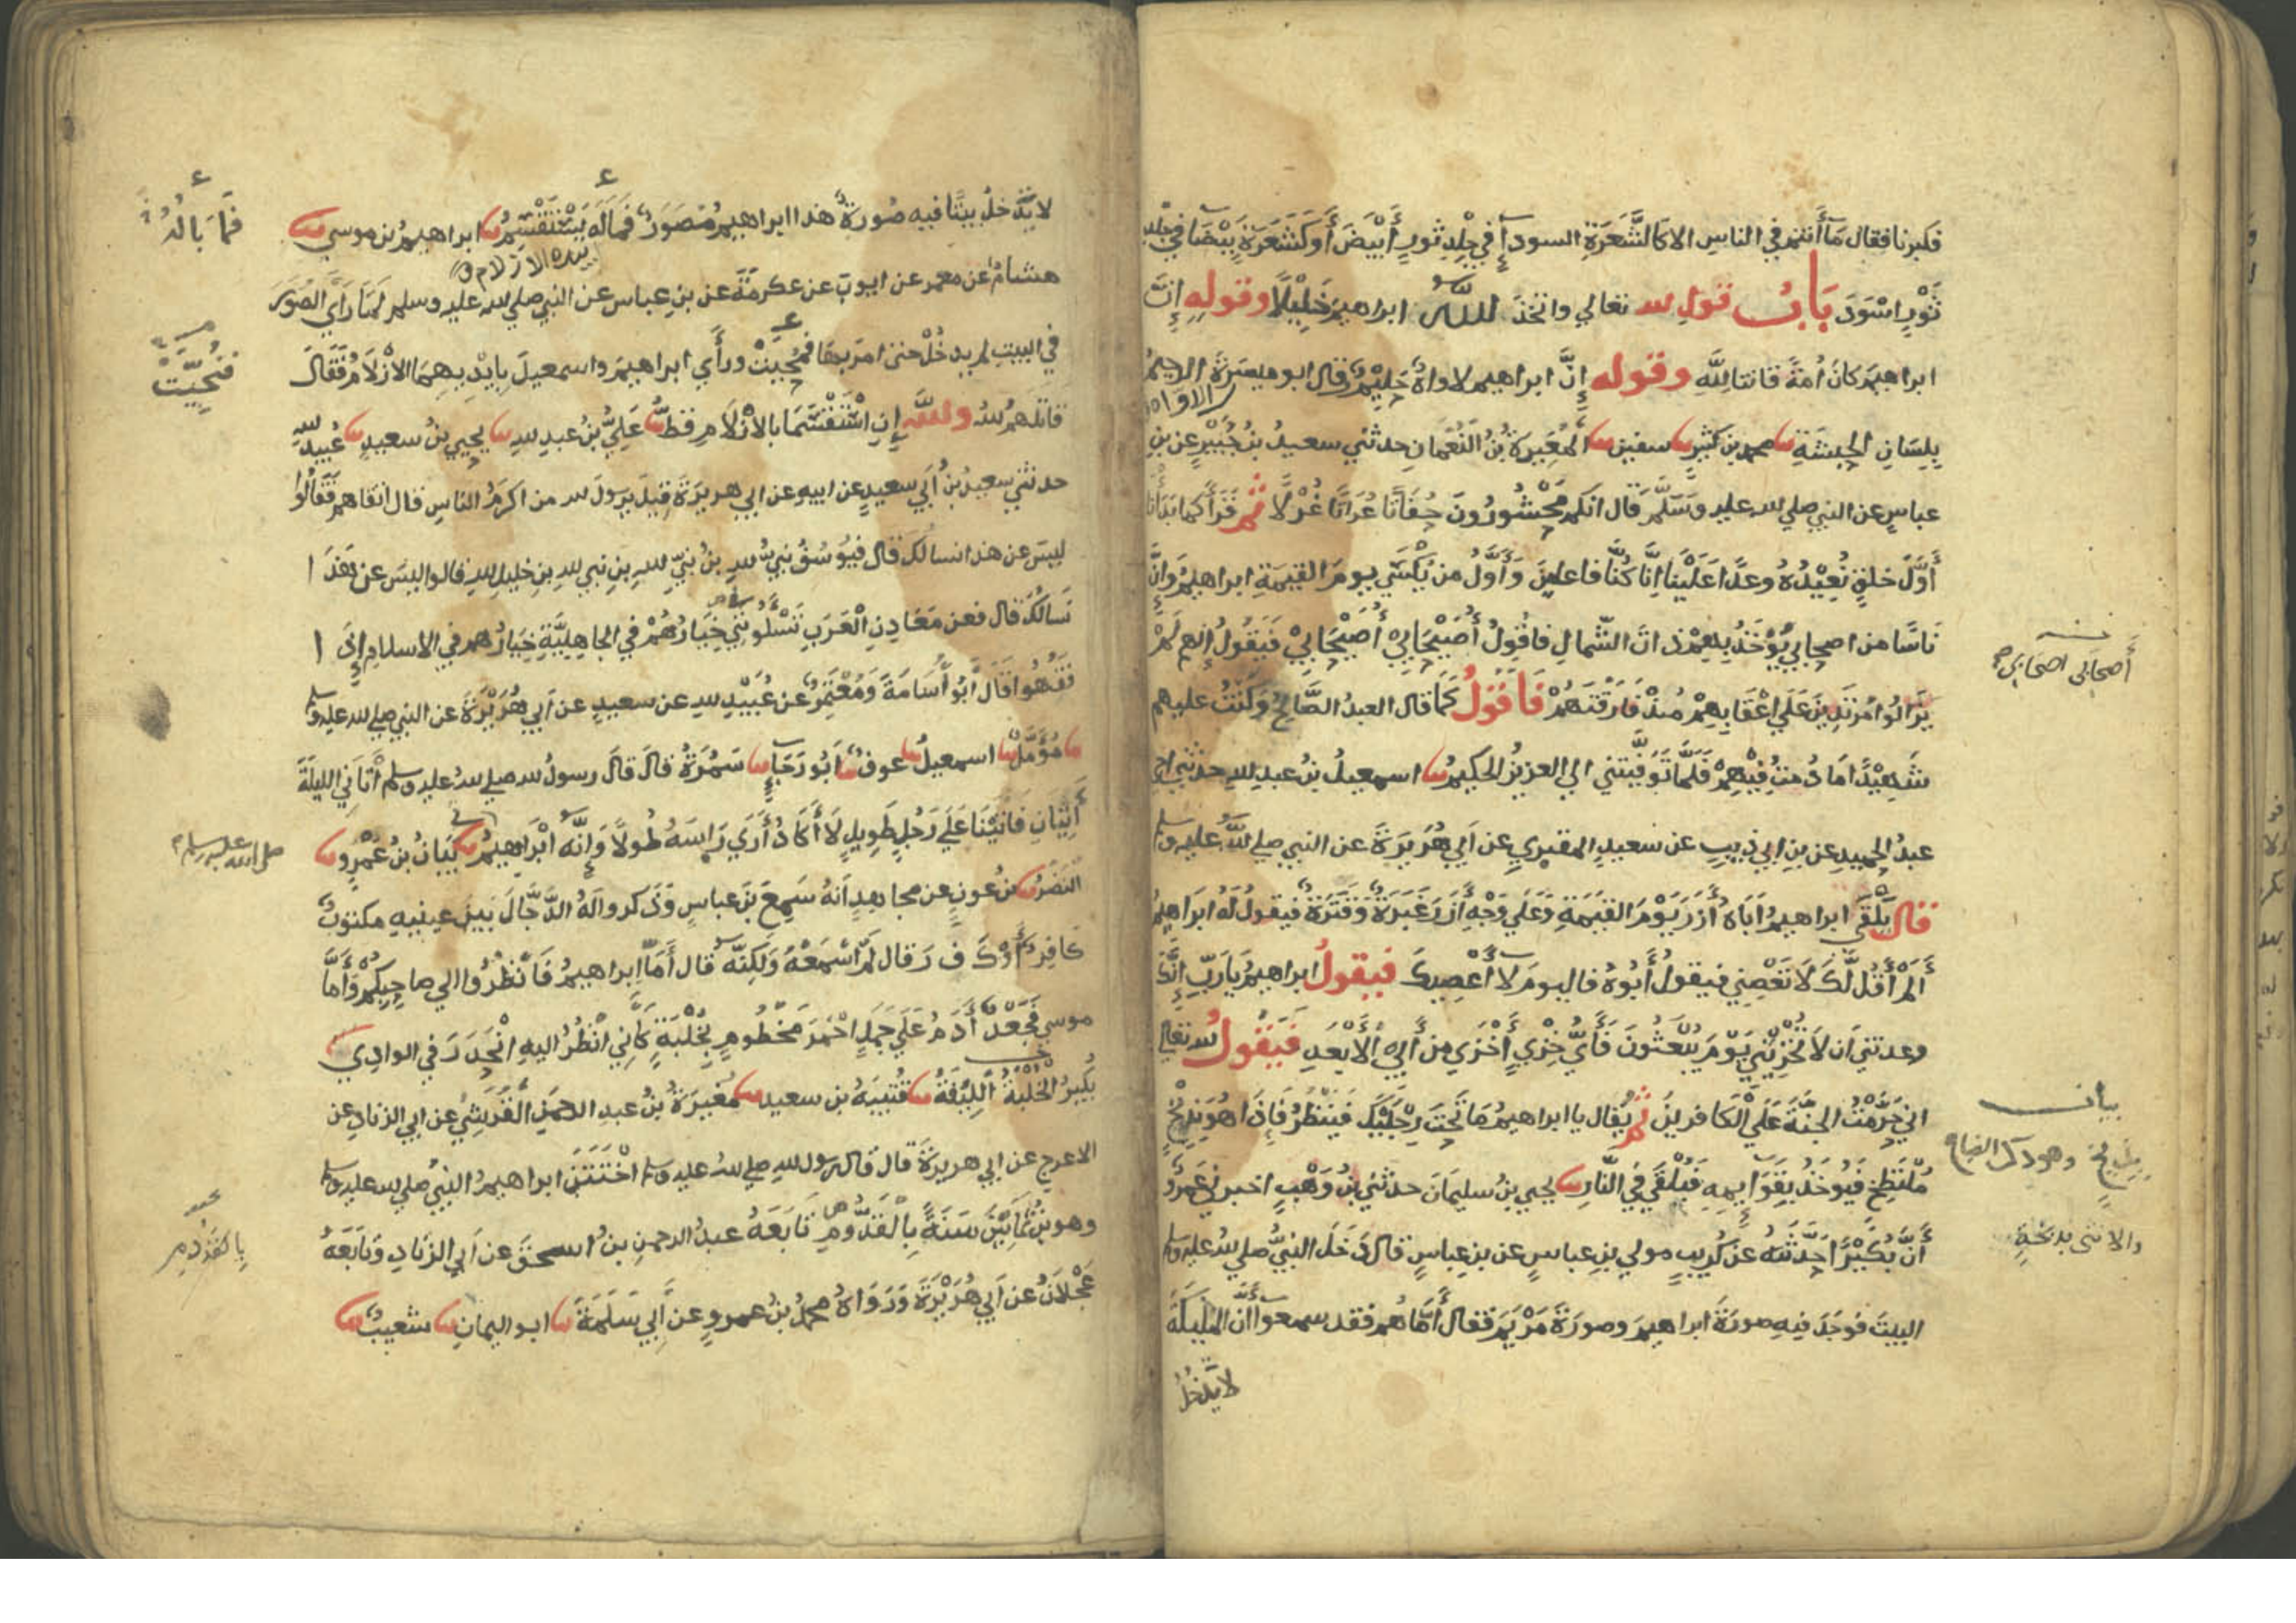 فكبرنا فقال مَا أَنتم في الناسِ الا كالشَّعَرَةِ السودآءِ في جِلْدِ ثورٍ أَبْيَضَ أَوكَشَعَرَةٍ بَيْضَآ في جِلْدِ
ثَوْرٍ اسْوَدَ بَابُ قولِ لله تعالي واتخذَ اللهُ ابراهيمَ خَلِيْلًا وقولِهِ إِنَّ
ابراهيمَ كانَ أُمةً قانتا لِلَّهِ وقوله إِنَّ ابراهيم لاواهٌ حَلِيْمٌ وقال ابو ميسَرَةَ الرحيمُ
الاواه
بِلِسَانِ الحبشَةِ ثنا محمد بن كثيرٍ ثنا سفين ثنا المُغِيرةُ بْنُ النُّعْمَانِ حدثني سعيدُ بنُ جُبَيْرٍ عن بنِ
عباسٍ عن النبي صلي لله عليه وَسَلَّمَ قال انكم مَحْشُورُونَ حُفَاتًا عُرَاتًا غُرْلًا ثُمَّ قَرَأَ كما بَدَأْنَا
أَوَّلَ خلقٍ نُعِيْدُهُ وعدًا عَلَيْنَا اِنَّا كُنَّا فاعلينَ وَأَوَّلُ من يُكْسَي يومَ القيمَةِ ابراهيمُ وإِنَّ
نَاسًا من اصحابي يُؤْخَذُ بِهِمْ ذاتَ الشّمالِ فاقُولُ أُصَيْحَابِي أُصَيْحَابِيْ فَيَقُولُ إِنهم لَمْ
أصحابي اصحابي
يَزَالُوا مُرْتَدِينَ عَلَي اعْقَابِهِمْ مُنذْ فَارَقْتَهُمْ فَاَقُولُ كَمَا قال العبدُ الصَّالِحُ وَكُنتُ عليهم
شَهِيْدًا مَا دُمتُ فِيْهِمْ فَلَمَّا تَوَفَّيْتَنِي الي العزيزُ الحكيمُ ثنا اسمعيلُ بنُ عبدِ للهِ حدثني اخي
عبدُ الحميدِ عن بنِ ابي ذيبٍ عن سعيدٍ المقبري عن اَبي هُرَيرَةَ عن النبي صلي اللهُ عليه وسلم
قال يَلْقَي ابراهيمُ اَبَاهُ أَزَرَ يَوْمَ القيمَةِ وَعَلَي وَجْهِ أَزَرَ غَبَرَةٌ وَقَتَرَةٌ فيقولُ لَهُ ابرَاهيمُ
أَلَمْ أَقُل لَّكَ لَا تَعْصِنِي فيقولُ أَبُوهُ فاليومَ لا أَعْصِيكَ فيقولُ ابراهيمُ يا رَبِّ اِنَّكَ
وعدتني اَن لَا تُخْزِيَنِي يَوْمَ يُبْعَثُونَ فَأَيُّ خِزْيٍ أَخْزَي مِن أَبِي الْأَبْعَدِ فَيَقُولُ لله تعالي
اني حَرَّمْتُ الجنَّةَ عَلَي الكافرينَ ثم يُقال يا ابراهيمُ مَا تَحتَ رِجْلَيْكَ فَيَنظُرُ فَإِذَا هُوَ بِذِيْخٍ
بيانـ
بِذِيخٍ وهو ذكر الضباع
والانثى بذيخةٍ
مُلْتَطِخٍ فَيُوخَذُ بِقَوَايِمِهِ فَيُلْقَي فِي النَّارِ ثنا يحيي بنُ سليمَانَ حدثني بنُ وَهْبٍ اخبرني عَمرٌو
أَنَّ بُكَيْرًا حَدَّثَهُ عن كُرَيبٍ مولي بنِ عباسٍ عن بنِ عباسٍ قال دَخَلَ النبيُّ صلي لله عليه وسلم
البيتَ فوَجَدَ فيهِ صورَةَ ابراهيمَ وصورَةَ مَرْيَمَ فقال أَمَّا هُم فقد سمعوا أَنَّ المَليكَةَ
لا يَدْخُلُ
لا يَدْخُلُ بيتًا فيه صُورَةٌ هذا ابراهيمُ مُصَوَّرٌ فَمَالَه يَسْتَقْسِمُ ثنا ابراهيمُ بن موسي ثنا
فَمَا بَالُهُ
هشامٌ عن معمرٍ عن ايوبَ عن عكرمَةَ عن بنِ عباسٍ عن النبي صلي لله عليه وسلم لَمَّا رَأَي الصُّوَرَ
في البيتِ لم يدخُلْ حتي امرَ بها فمُحِيَتْ ورأَي ابراهيمَ واسمعيلَ بايْدِيهِمَا الأزْلَامُ فَقَالَ
فَنُحِّيَتْ
قاتلهم لله واللهِ إِنِ اسْتَقْسَمَا بالأزْلَامِ قطُّ ثنا عَلِيُّ بنُ عبدِ للهِ ثنا يحيي بنُ سعيدٍ ثنا عُبيدُ للهِ
حدثني سعيدُ بنُ أَبي سعيدٍ عن ابيهِ عن ابي هريرَةَ قِيلَ يرسُولَ لله من اكرمُ الناسِ قال اتقاهم فَقَالُوا
ليسَ عن هذا نسالكَ قال فيُوسُفُ نبيُّ للهِ بنُ نبيِّ للهِ بنِ نبي للهِ بنِ خليلِ للهِ قالوا ليسَ عن هَذَا
نَسالُكَ قال فعن مَعَادِنِ الْعَرَبِ تَسْئَلُونِي خِيَارُهُمْ في الجاهِلِيَّةِ خِيَارُهم في الاسلامِ إِذَا
فَقُهُوا قَالَ أَبُو أُسَامَةَ وَمُعْتَمِرٌ عن عُبَيْدِ للهِ عن سعيدٍ عن اَبي هُرَيْرَةَ عن النبي صلي لله عليه وسلم
ثنا مُؤَمَّلٌ ثنا اسمعيلُ ثنا عوفٌ ثنا أَبُو رَجَاءٍ ثنا سَمُرَةُ قالَ قالَ رسولُ لله صلي لله عليه وسلم أتاني الليلَةَ
أتِيَانِ فَأَتَيْنَا عَلَي رَجُلٍ طَوِيلٍ لَا أَكَادُ أَرَي رَاسَهُ طُولًا وَإِنَّهُ ابْرَاهِيمُ ثنا بَيَانُ بنُ عَمْرٍو ثنا
صلى الله عليه وسلم
النَّضْرُ ثنا بنُ عونٍ عن مجاهدٍ اَنهُ سَمِعَ بنَ عباسٍ وَذَكروا لَهُ الدَّجَّالَ بَينَ عينيهِ مكتوبٌ
كافِرٌ أَوْ كَ ف رَ قال لَم اسْمَعْهُ وَلَكِنَّه قال أَمَّا ابراهيمُ فَانْظُرُوا الي صاحِبِكُمْ وَأَمَّا
موسي فَجَعْدٌ أَدَمُ عَلَي جَمَلٍ احْمَرَ مَخْطُومٍ بِخُلْبَةٍ كَأَنِّي انْظُرُ اليهِ انْحَدَرَ في الوادِي
يُكَبِّرُ الخُلْبَةُ اللِّيْفَةُ ثنا قُتَيبَةُ بن سعيدٍ ثنا مُغِيرَةُ بنُ عبدِ الرحمنِ القُرَشِيُّ عن ابي الزنادِ عن
الاعرجِ عن ابي هريرَةَ قال قال رسول للهِ صلي لله عليه وسلم اخْتَتَنَ ابراهيمُ النبيُّ صلي لله عليه وسلم
وهو بنُ ثَمَانِيْنَ سَنَةً بِالْقَدُّومِ تَابَعَهُ عبدُ الرحمنِ بنُ اسحقَ عن اَبي الزنادِ وَتَابَعَهُ
بِالقَدُومِ
عَجْلَانُ عن اَبي هُرَيْرَةَ وَرَوَاهُ محمدُ بنُ عمرٍو عن اَبي سَلَمَةَ ثنا ابو اليمانِ ثنا شعيبٌ ثنا